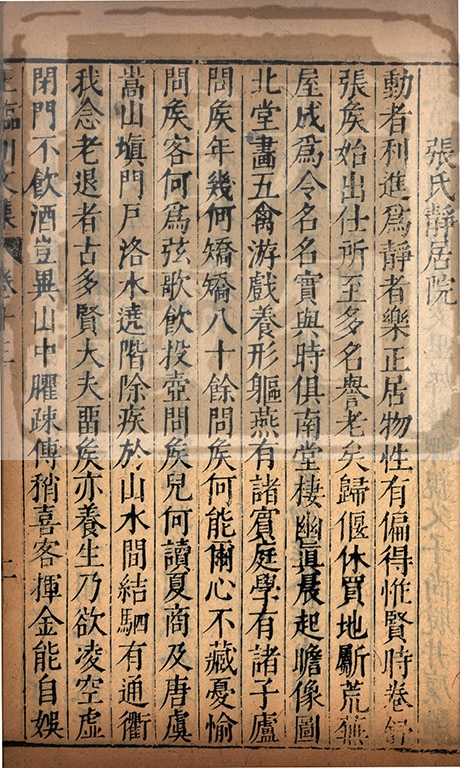 張氏靜居院
動者利進爲靜者樂正居物性有偏得惟賢時卷舒
張矦始出仕所至多名譽老矣歸偃休買地斸荒蕪
屋成爲令名名實與時俱南堂棲幽眞晨起瞻像圖
北堂畫五禽游戲養形軀燕有諸賓庭學有諸子廬
問矦年幾何矯矯八十餘問矦何能爾心不藏憂愉
問矦客何爲弦歌飲投壺問矦兒何讀夏商及唐虞
嵩山塡門戸洛水遶階除疾於山水間結駟有通衢
我念老退者古多賢大夫畱矦亦養生乃欲凌空虚
閉門不飲酒豈異山中臞疎傅稍喜客揮金能自娛
王臨川文集 卷十三
二